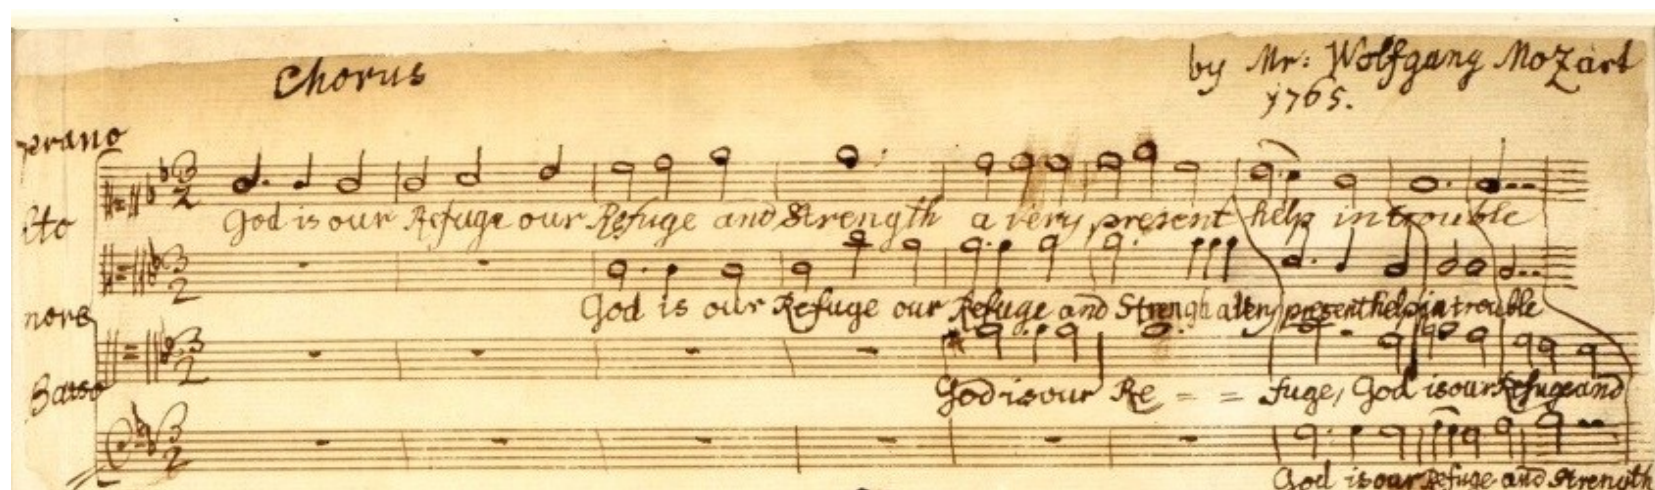 Chorus
by Mr: Wolfgang Mozart
1765.
prano
God is our Refuge our Refuge and Strength a very present help in trouble
lto
God is our Refuge our Refuge and Strengh a very present help in trouble
nore
God is our Re - = fuge, God is our Refuge and
Basso
God is our Refuge and Strength